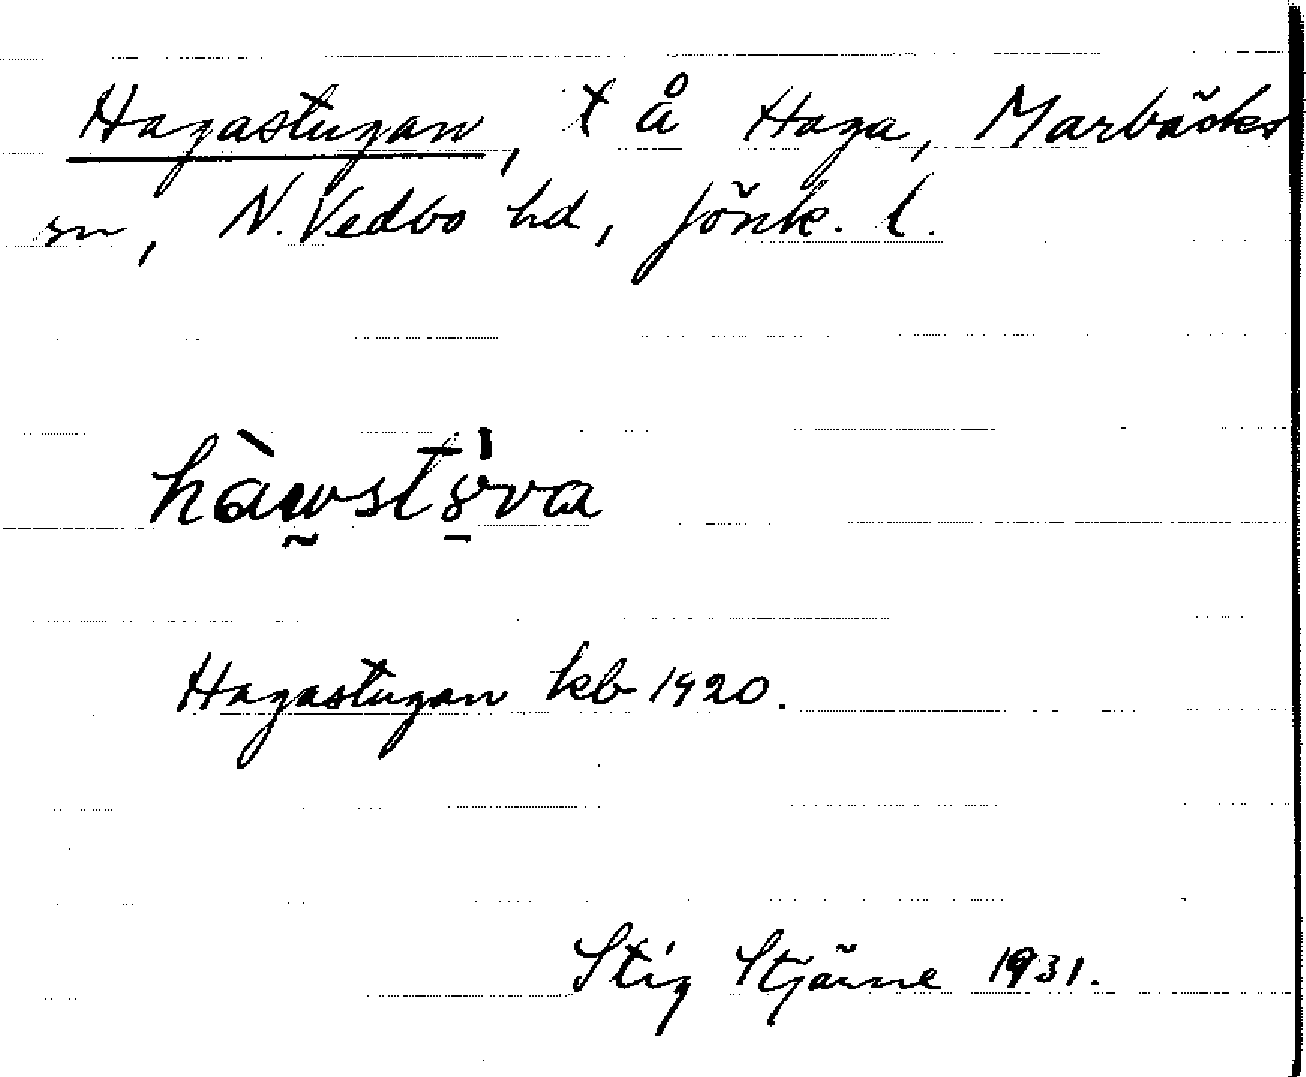 Hagastugan, t å Haga, Marbäcks
sn, N. Vedbo hd, Jönk. l.
hàw̰stọ̈va
Hagastugan kb 1920.
Stig Stjärne 1931.